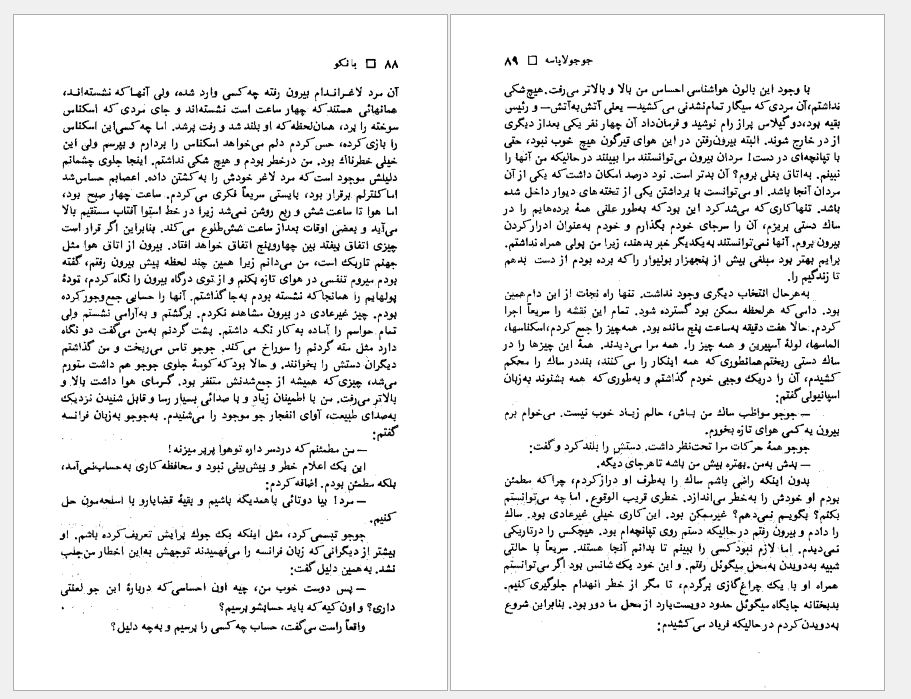 ۸۸ □ بانکو
آن مرد لاغراندام بیرون رفته چه‌کسی وارد شده، ولی آنهاکه نشسته‌اند،
همانهائی هستندکه چهار ساعت است نشسته‌اند و جای مردی که اسکناس
سوخته را برد، همان‌لحظه‌که او بلند شد و رفت پرشد. اما چه‌کسی‌این اسکناس
را بازی‌کرده، حس‌کردم دلم می‌خواهد اسکناس را بردارم و بپرسم ولی این
خیلی خطرناك بود. من درخطر بودم و هیچ شکی نداشتم. اینجا جلوی چشمانم
دلیلش موجود است‌که مرد لاغر خودش را به‌کشتن داده. اعصابم حساس‌شد
اماکنترلم برقرار بود، بایستی سریعاً فکری می‌کردم. ساعت چهار صبح بود،
اما هوا تا ساعت شش و ربع روشن نمی‌شد زیرا در خط استوا آفتاب مستقیم بالا
می‌آید و بعضی اوقات بعداز ساعت شش‌طلوع می‌کند. بنابراین اگر قرار است
چیزی اتفاق بیفتد بین چهاروپنج اتفاق خواهد افتاد. بیرون از اتاق هوا مثل
جهنم تاریك‌است، من می‌دانم زیرا همین چند لحظه پیش بیرون رفتم، گفته
بودم میروم تنفسی در هوای تازه بکنم و از توی درگاه بیرون را نگاه‌کردم، تودهٔ
پولهایم را همانجاکه نشسته بودم به‌جاگذاشتم. آنها را حسابی جمع‌وجورکرده
بودم. چیز غیرعادی در بیرون مشاهده نکردم. برگشتم و به‌آرامی نشستم ولی
تمام حواسم را آماده به‌کار نگه داشتم. پشت گردنم به‌من می‌گفت دو نگاه
دارد مثل مته گردنم را سوراخ می‌کند. جوجو تاس می‌ریخت و من گذاشتم
دیگران دستش را بخوانند. و حالا بودکه کومهٔ جلوی جوجو هم داشت متورم
می‌شد، چیزی‌که همیشه از جمع‌شدنش متنفر بود. گرمای هوا داشت بالا و
بالاتر می‌رفت. من با اطمینان زیاد و با صدائی بسیار رسا و قابل شنیدن نزدیک
به‌صدای طبیعت، آوای انفجار جو موجود را می‌شنیدم. به‌جوجو به‌زبان فرانسه
گفتم:
— من مطمئنم که دردسر داره توهوا پرپر میزنه!
این یك اعلام خطر و پیش‌بینی نبود و محافظه‌کاری به‌حساب‌نمی‌آمد،
بلکه مطمئن بودم. اضافه‌کردم:
— مرد! بیا دوتائی باهمدیگه باشیم و بقیهٔ قضایارو با اسلحه‌مون حل
کنیم.
جوجو تبسمی‌کرد، مثل اینکه یك جوك برایش تعریف‌کرده باشم. او
بیشتر از دیگرانی‌که زبان فرانسه را می‌فهمیدند توجهش به‌این اخطار من‌جلب
نشد. به‌همین دلیل گفت:
— پس دوست خوب من، چیه اون احساسی‌که دربارهٔ این جو لعنتی
داری؟ و اون‌کیه‌که باید حسابشو برسیم؟
واقعاً راست می‌گفت، حساب چه‌کسی را برسیم و به‌چه دلیل؟
جوجولاپاسه □ ۸۹
با وجود این بالون هواشناسی احساس من بالا و بالاتر می‌رفت. هیچ‌شکی
نداشتم،آن مردی‌که سیگار تمام‌نشدنی می‌کشید— یعنی آتش‌به‌آتش— و رئیس
بقیه بود،دوگیلاس پراز رام نوشید و فرمان‌داد آن چهار نفر یکی بعداز دیگری
از در خارج شوند. البته بیرون‌رفتن در این هوای قیرگون هیچ خوب نبود، حتی
با تپانچه‌ای در دست! مردان بیرون می‌توانستند مرا ببینند درحالیکه من آنها را
نبینم. به‌اتاق بغلی بروم؟ آن بدتر است. نود درصد امکان داشت‌که یکی از آن
مردان آنجا باشد. او می‌توانست با برداشتن یکی از تخته‌های دیوار داخل شده
باشد. تنهاکاری‌که می‌شدکرد این بودکه به‌طور علنی همهٔ برده‌هایم را در
ساك دستی بریزم، آن را سرجای خودم بگذارم و خودم به‌عنوان ادرارکردن
بیرون بروم. آنها نمی‌توانستند به‌یکدیگر خبر بدهند، زیرا من پولی همراه نداشتم.
برایم بهتر بود مبلغی بیش از پنجهزار بولیوار را که برده بودم از دست بدهم
تا زندگیم را.
به‌هرحال انتخاب دیگری وجود نداشت. تنها راه نجات از این دام‌همین
بود. دامی‌که هرلحظه ممکن بود گسترده شود. تمام این نقشه را سریعاً اجرا
کردم. حالا هفت دقیقه به‌ساعت پنج مانده بود. همه‌چیز را جمع‌کردم،اسکناسها،
الماسها، لولهٔ آسپیرین و همه چیز را. همه مرا می‌دیدند. همهٔ این چیزها را در
ساك دستی ریختم‌همانطوری‌که همه اینکار را می‌کنند، بنددر ساك را محکم
کشیدم، آن را دریك وجبی خودم گذاشتم و به‌طوری‌که همه بشنوند به‌زبان
اسپانیولی‌گفتم:
— جوجو مواظب ساك من باش، حالم زیاد خوب نیست. می‌خوام برم
بیرون یه‌کمی هوای تازه بخورم.
جوجو همهٔ حرکات مرا تحت‌نظر داشت. دستش را بلندکرد و گفت:
— بدش به‌من. بهتره پیش من باشه تاهرجای دیگه.
بدون اینکه راضی باشم ساك را به‌طرف او درازکردم، چراکه مطمئن
بودم او خودش را به‌خطر می‌اندازد. خطری قریب الوقوع. اما چه می‌توانستم
بکنم؟ بگویم نمی‌دهم؟ غیرممکن بود. این‌کاری خیلی غیرعادی بود. ساك
را دادم و بیرون رفتم درحالیکه دستم روی تپانچه‌ام بود. هیچکس را درتاریکی
نمی‌دیدم. اما لازم نبودکسی را ببینم تا بدانم آنجا هستند. سریعاً با حالتی
شبیه به‌دویدن به‌محل میگوئل رفتم. و این خود یک شانس بود اگر می‌توانستم
همراه او با یک چراغ‌گازی برگردم، تا مگر از خطر انهدام جلوگیری کنیم.
بدبختانه جایگاه میگوئل حدود دویست‌یارد از محل ما دور بود. بنابراین شروع
به‌دویدن‌کردم درحالیکه فریاد می‌کشیدم: